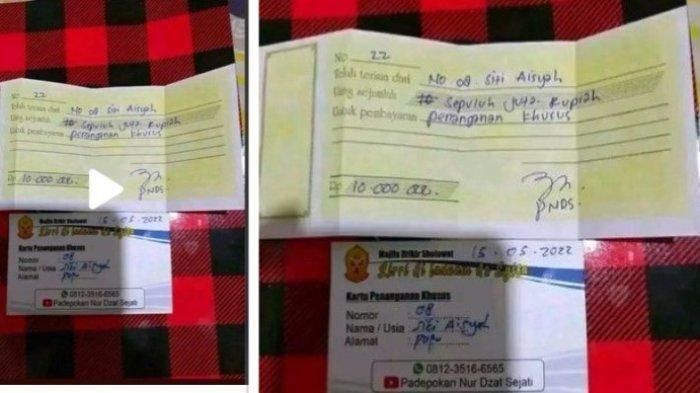 No 22
Telah terima dari No 08 Siti Aisyah
Uang sejumlah Sepuluh Juta Rupiah
Untuk pembayaran penanganan khusus
Rp 10.000.00.
PNDS.
15-05-2022
Majlis Dzikir Sholawat
Kartu Penanganan Khusus
Nomor : 08
Nama / Usia : Siti Aisyah
Alamat :
0812-3516-6565
Padepokan Nur Dzat Sejati
No 22
Telah terima dari No 08 Siti Aisyah
Uang sejumlah Sepuluh Juta Rupiah
Untuk pembayaran penanganan khusus
Rp 10.000.00.
PNDS.
15-05-2022
Majlis Dzikir Sholawat
Kartu Penanganan Khusus
Nomor : 08
Nama / Usia : Siti Aisyah
Alamat :
0812-3516-6565
Padepokan Nur Dzat Sejati